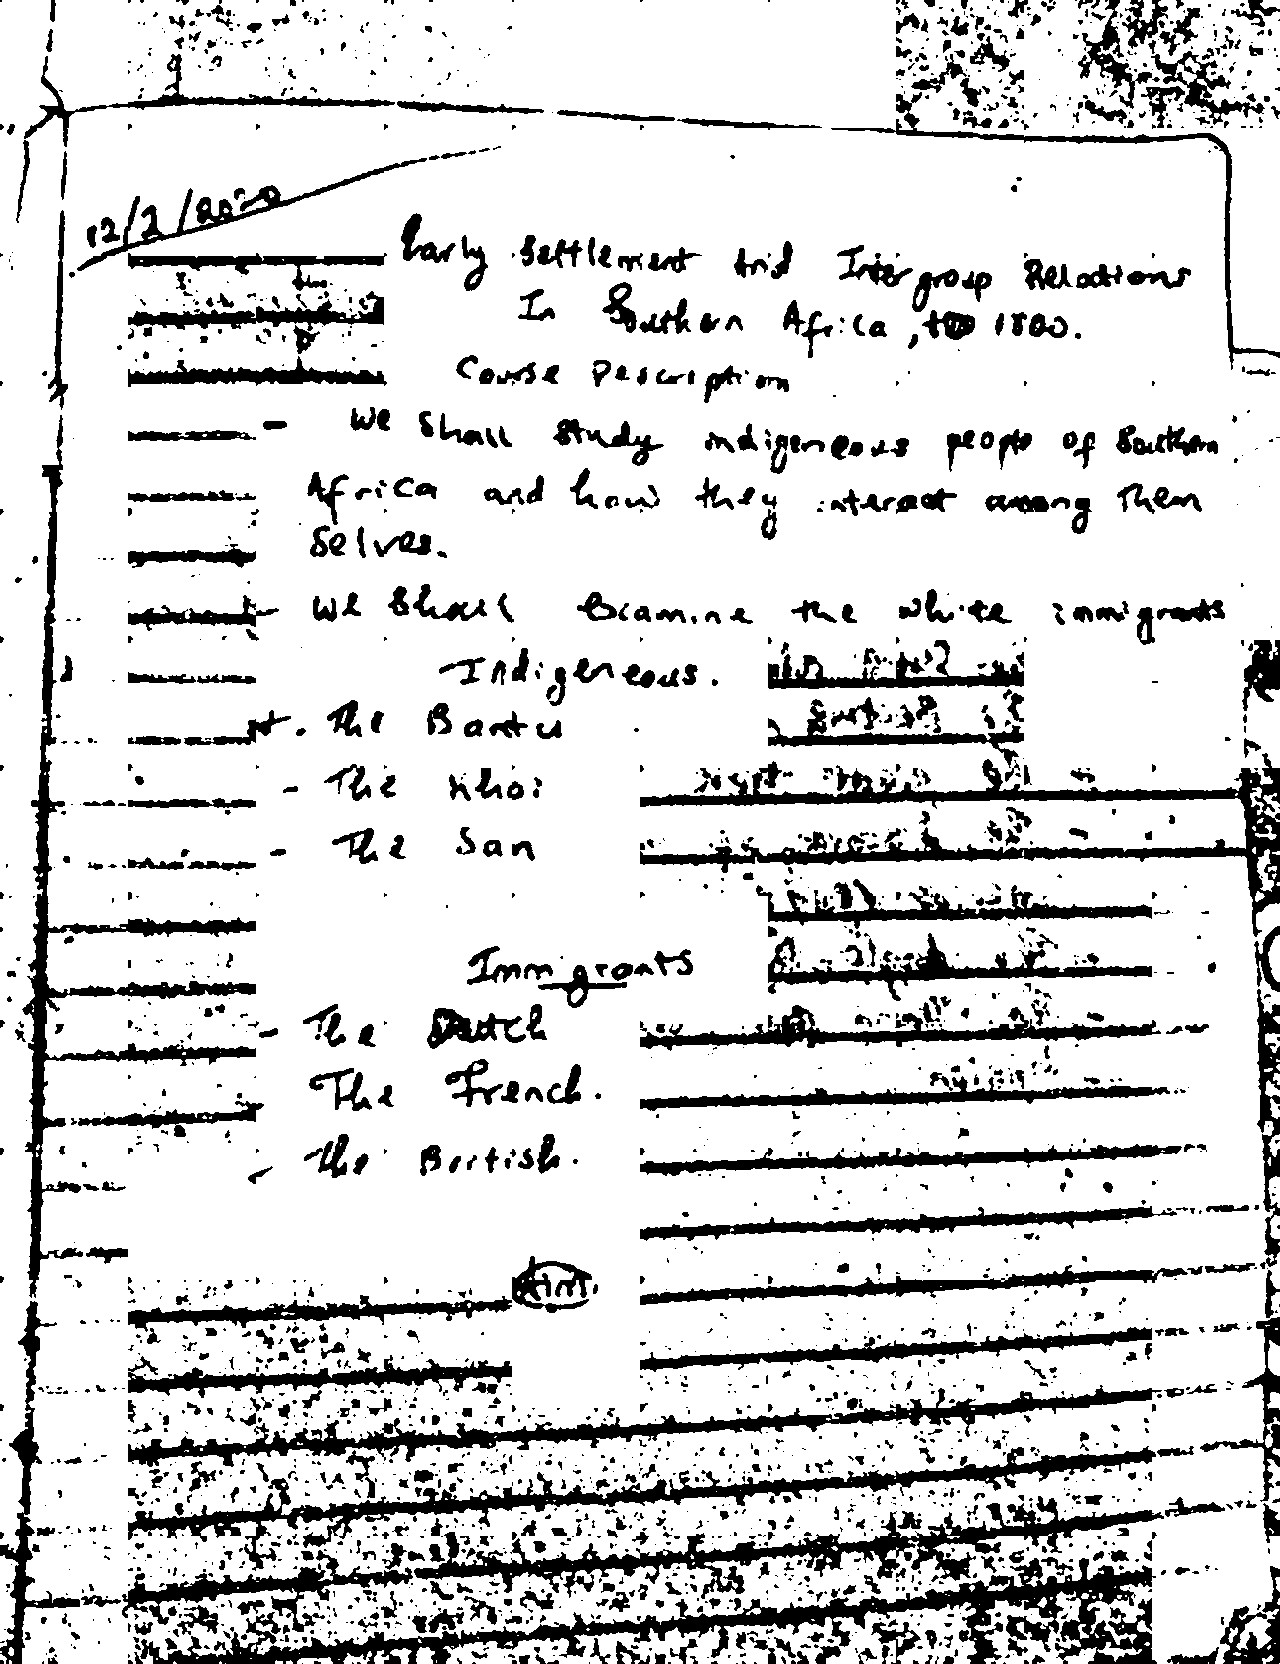 12/2/2020
Early Settlement And Intergroup Relations
In Southern Africa, to 1800.
Course Description
- We shall study indigeneous people of Southern
Africa and how they interact among Them
selves.
- We Shall Examine the white immigrants
Indigeneous.
. The Bantu
- The Khoi
- The San
Immgrants
- The Dutch
- The French.
- The British.
Aim